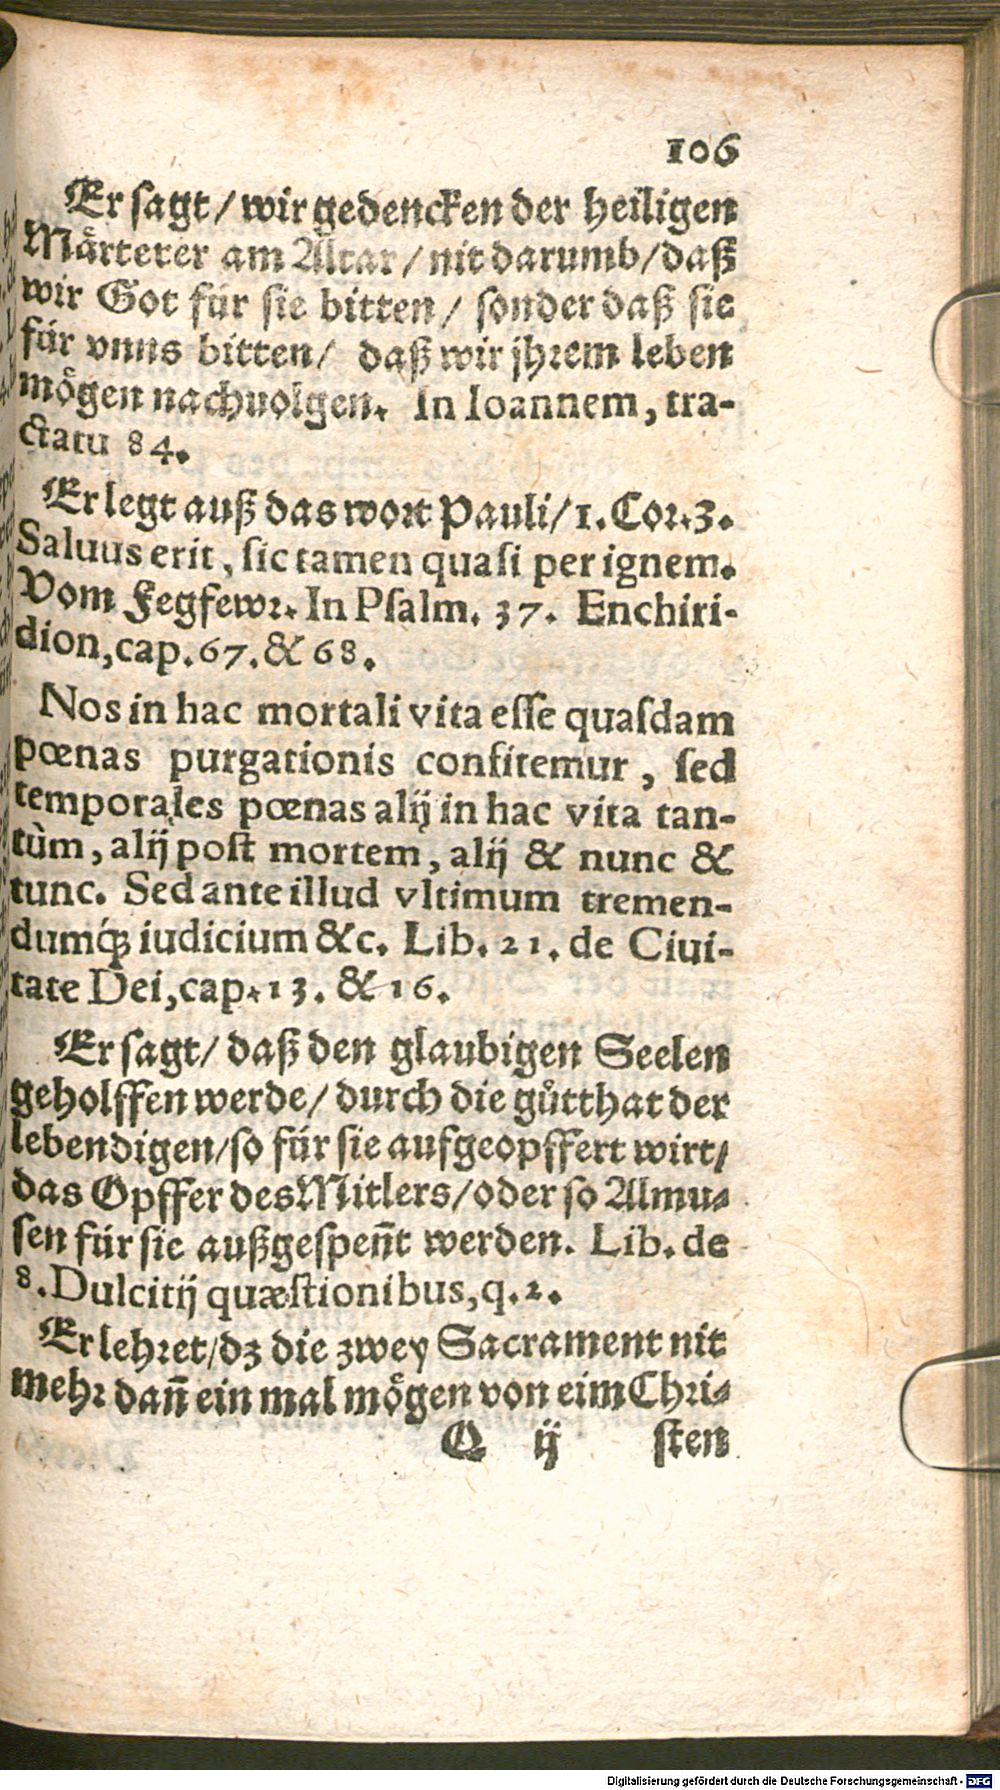 106
Er sagt / wir gedencken der heiligen
Märterer am Altar / nit darumb / daß
wir Got für sie bitten / sonder daß sie
für vnns bitten / daß wir jhrem leben
mögen nachuolgen. In Ioannem, tra-
ctatu 84.
Er legt auß das wort Pauli / 1. Cor. 3.
Saluus erit, sic tamen quasi per ignem.
Vom Fegfewr. In Psalm. 37. Enchiri-
dion, cap. 67. & 68.
Nos in hac mortali vita esse quasdam
pœnas purgationis confitemur, sed
temporales pœnas alij in hac vita tan-
tùm, alij post mortem, alij & nunc &
tunc. Sed ante illud vltimum tremen-
dumq́; iudicium &c. Lib. 21. de Ciui-
tate Dei, cap. 13. & 16.
Er sagt / daß den glaubigen Seelen
geholffen werde / durch die gůtthat der
lebendigen / so für sie aufgeopffert wirt /
das Opffer des Mitlers / oder so Almu-
sen für sie außgespeñt werden. Lib. de
8. Dulcitij quæstionibus, q. 2.
Er lehret / dz die zwey Sacrament nit
mehr dañ ein mal mögen von eim Chri-
Q ij sten
Digitalisierung gefördert durch die Deutsche Forschungsgemeinschaft - DFG